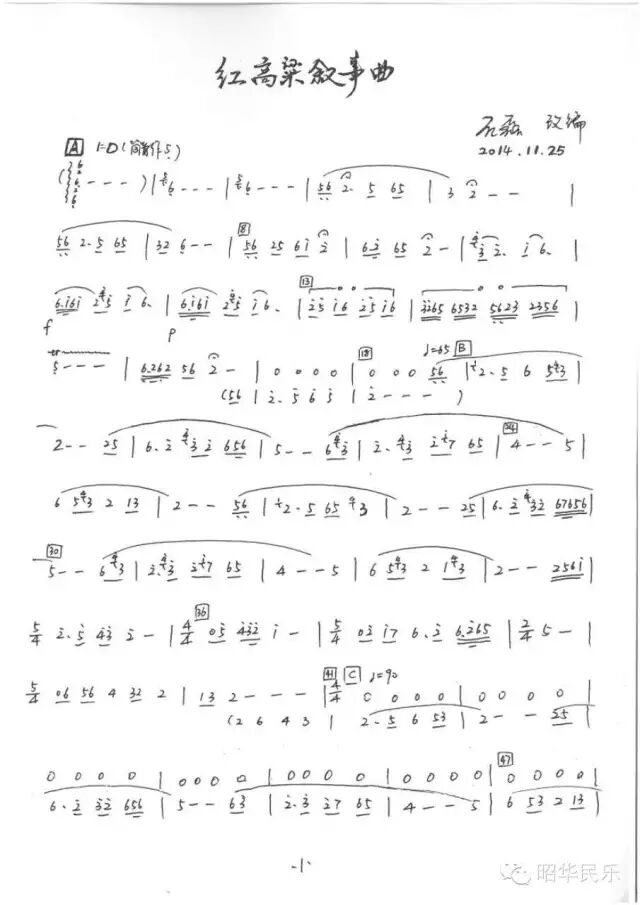 红高粱叙事曲
石磊 改编
2014.11.25
A 1=D(筒音作5)
- - - ) | 6 - - - | 6 - - - | 56 2· 5 65 | 3 2 - - |
56 2·5 65 | 32 6 - - | 8 56 25 61 2 | 6·2 65 2 - | 3 2· 1 6· |
6·161 25 1 6· | 6·161 25 1 6· | 13 25 16 25 16 | 3265 6532 5623 2356 |
f p
tr
5 - - - | 6·262 56 2 - | 0 0 0 0 | 18 0 0 0 56 | 2·5 6 543 |
♩=65 B
(56 | 2·5 6 5 | 2 - - - )
2 - - 25 | 6·2 432 656 | 5 - - 643 | 2·43 27 65 | 24 4 - - 5 |
6 543 2 13 | 2 - - 56 | 2·5 65 43 | 2 - - 25 | 6·2 432 67656 |
30 5 - - 643 | 2·43 27 65 | 4 - - 5 | 6 543 2 143 | 2 - - 2561 |
5/4 2·5 43 2 - | 4/4 36 05 432 1 - | 5/4 02 17 6·2 6·265 | 2/4 5 - |
5/4 06 56 4 32 2 | 13 2 - - - | 4/4 41 C ♩=90 0 0 0 0 | 0 0 0 0 |
(2 6 4 3 | 2·5 6 53 | 2 - - 25 |
0 0 0 0 | 0 0 0 0 | 0 0 0 0 | 0 0 0 0 | 47 0 0 0 0 |
6·2 32 656 | 5 - - 63 | 2·3 27 65 | 4 - - 5 | 6 53 2 13 |
-1-
昭华民乐